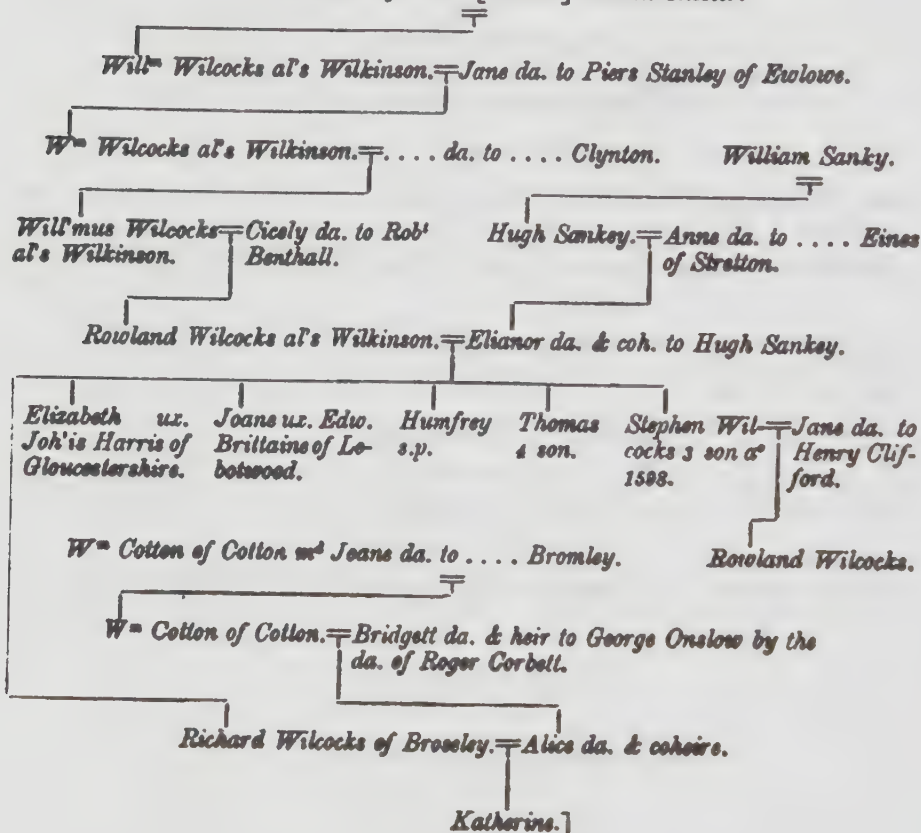 Will^m Wilcocks al's Wilkinson.=Jane da. to Piers Stanley of Ewlowe.
W^m Wilcocks al's Wilkinson.=.... da. to .... Clynton.
William Sanky.
Will'mus Wilcocks=Cicely da. to Rob^t
al's Wilkinson. Benthall.
Hugh Sankey.=Anne da. to .... Eines
of Stretton.
Rowland Wilcocks al's Wilkinson.=Elianor da. & coh. to Hugh Sankey.
Elizabeth ux.
Joh'is Harris of
Gloucestershire.
Joane ux. Edw.
Brittaine of Le-
botwood.
Humfrey
s.p.
Thomas
4 son.
Stephen Wil-=Jane da. to
cocks 3 son a^o Henry Clif-
1598. ford.
Rowland Wilcocks.
W^m Cotton of Cotton m^d Jeane da. to .... Bromley.
W^m Cotton of Cotton.=Bridgett da. & heir to George Onslow by the
da. of Roger Corbett.
Richard Wilcocks of Broseley.=Alice da. & coheire.
Katherine.]